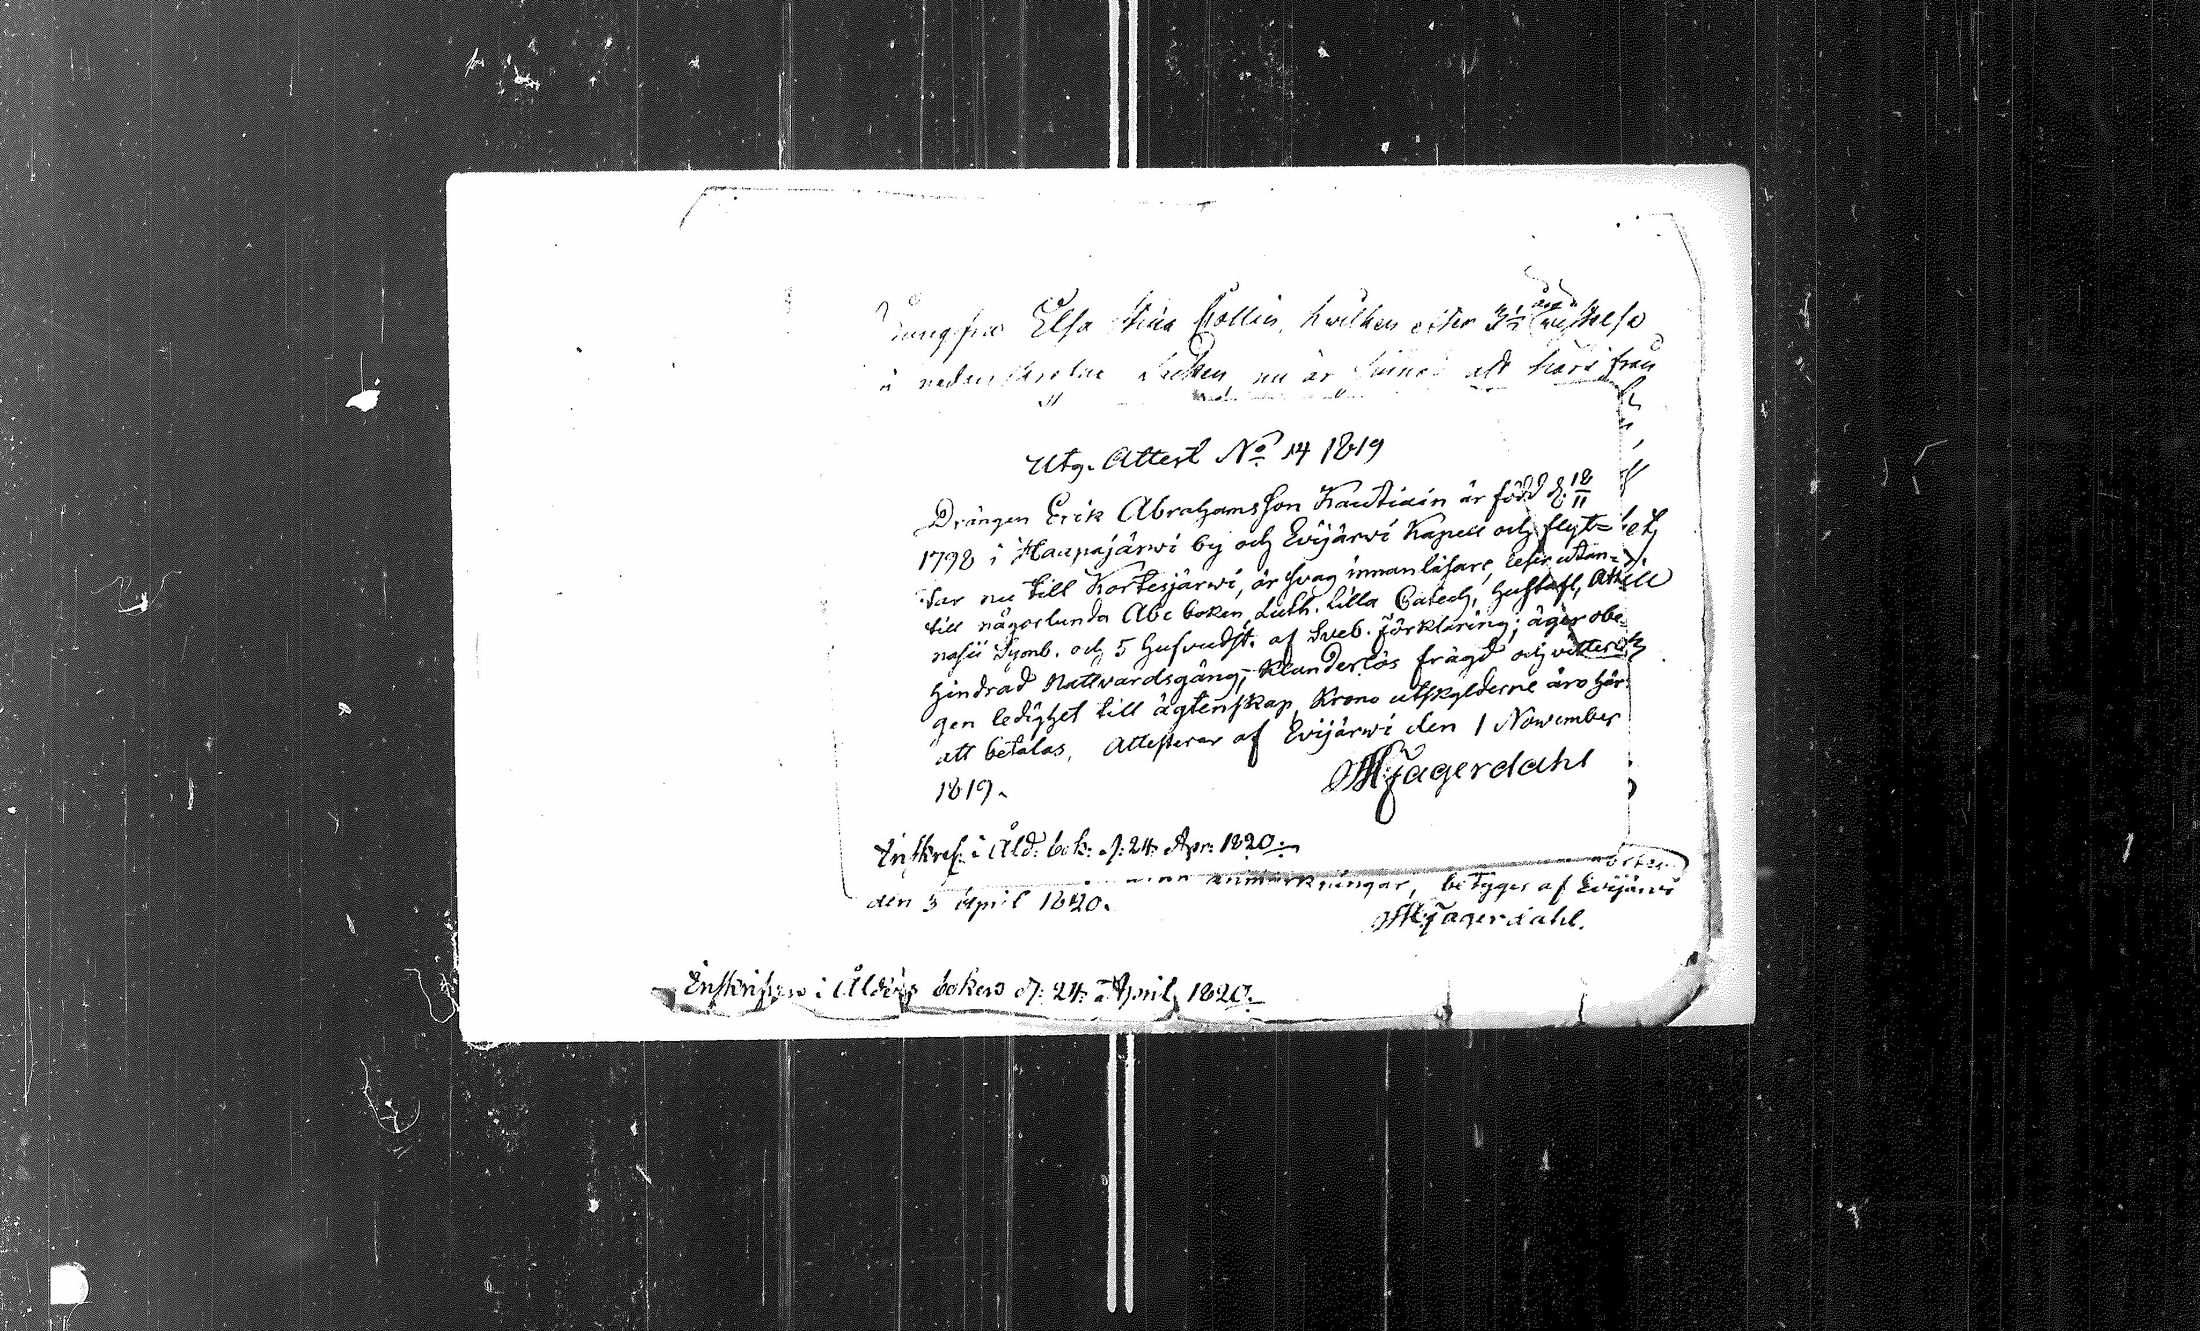 Jungfru Elsa Stina Collin, hwilken efter 3½ års wistelse
i nedanskrefne Socken, nu är sinnad att härifrån
Utg. Attest No 14 1819
Drängen Erik Abrahamsson Kautiain är född d. 18/11
1798 i Haapajärwi by och Evijärwi Kapell och flyt=
tar nu till Kortesjärwi, är svag innanläsare, läser utan=
till någorlunda Abc boken, Luth. lilla Catech, Hustafl, Atha
nasii Symb. och 5 hufvudst. af Sveb. förklaring; äger obe
hindrad Nattvardsgång, klanderlös frägd och vitterli
gen ledighet till ägtenskap, Krono utskylderne äro här
att betalas, Attesterar af Evijärwi den 1 November
1819.
HFagerdahl
Inskref. i Åld: bok: d: 24 Apr: 1820.
anmärkningar, betyges af Evijärwi
den 3 April 1820.
HFagerdahl.
Inskrifven i Ålders boken d: 24 April 1820.